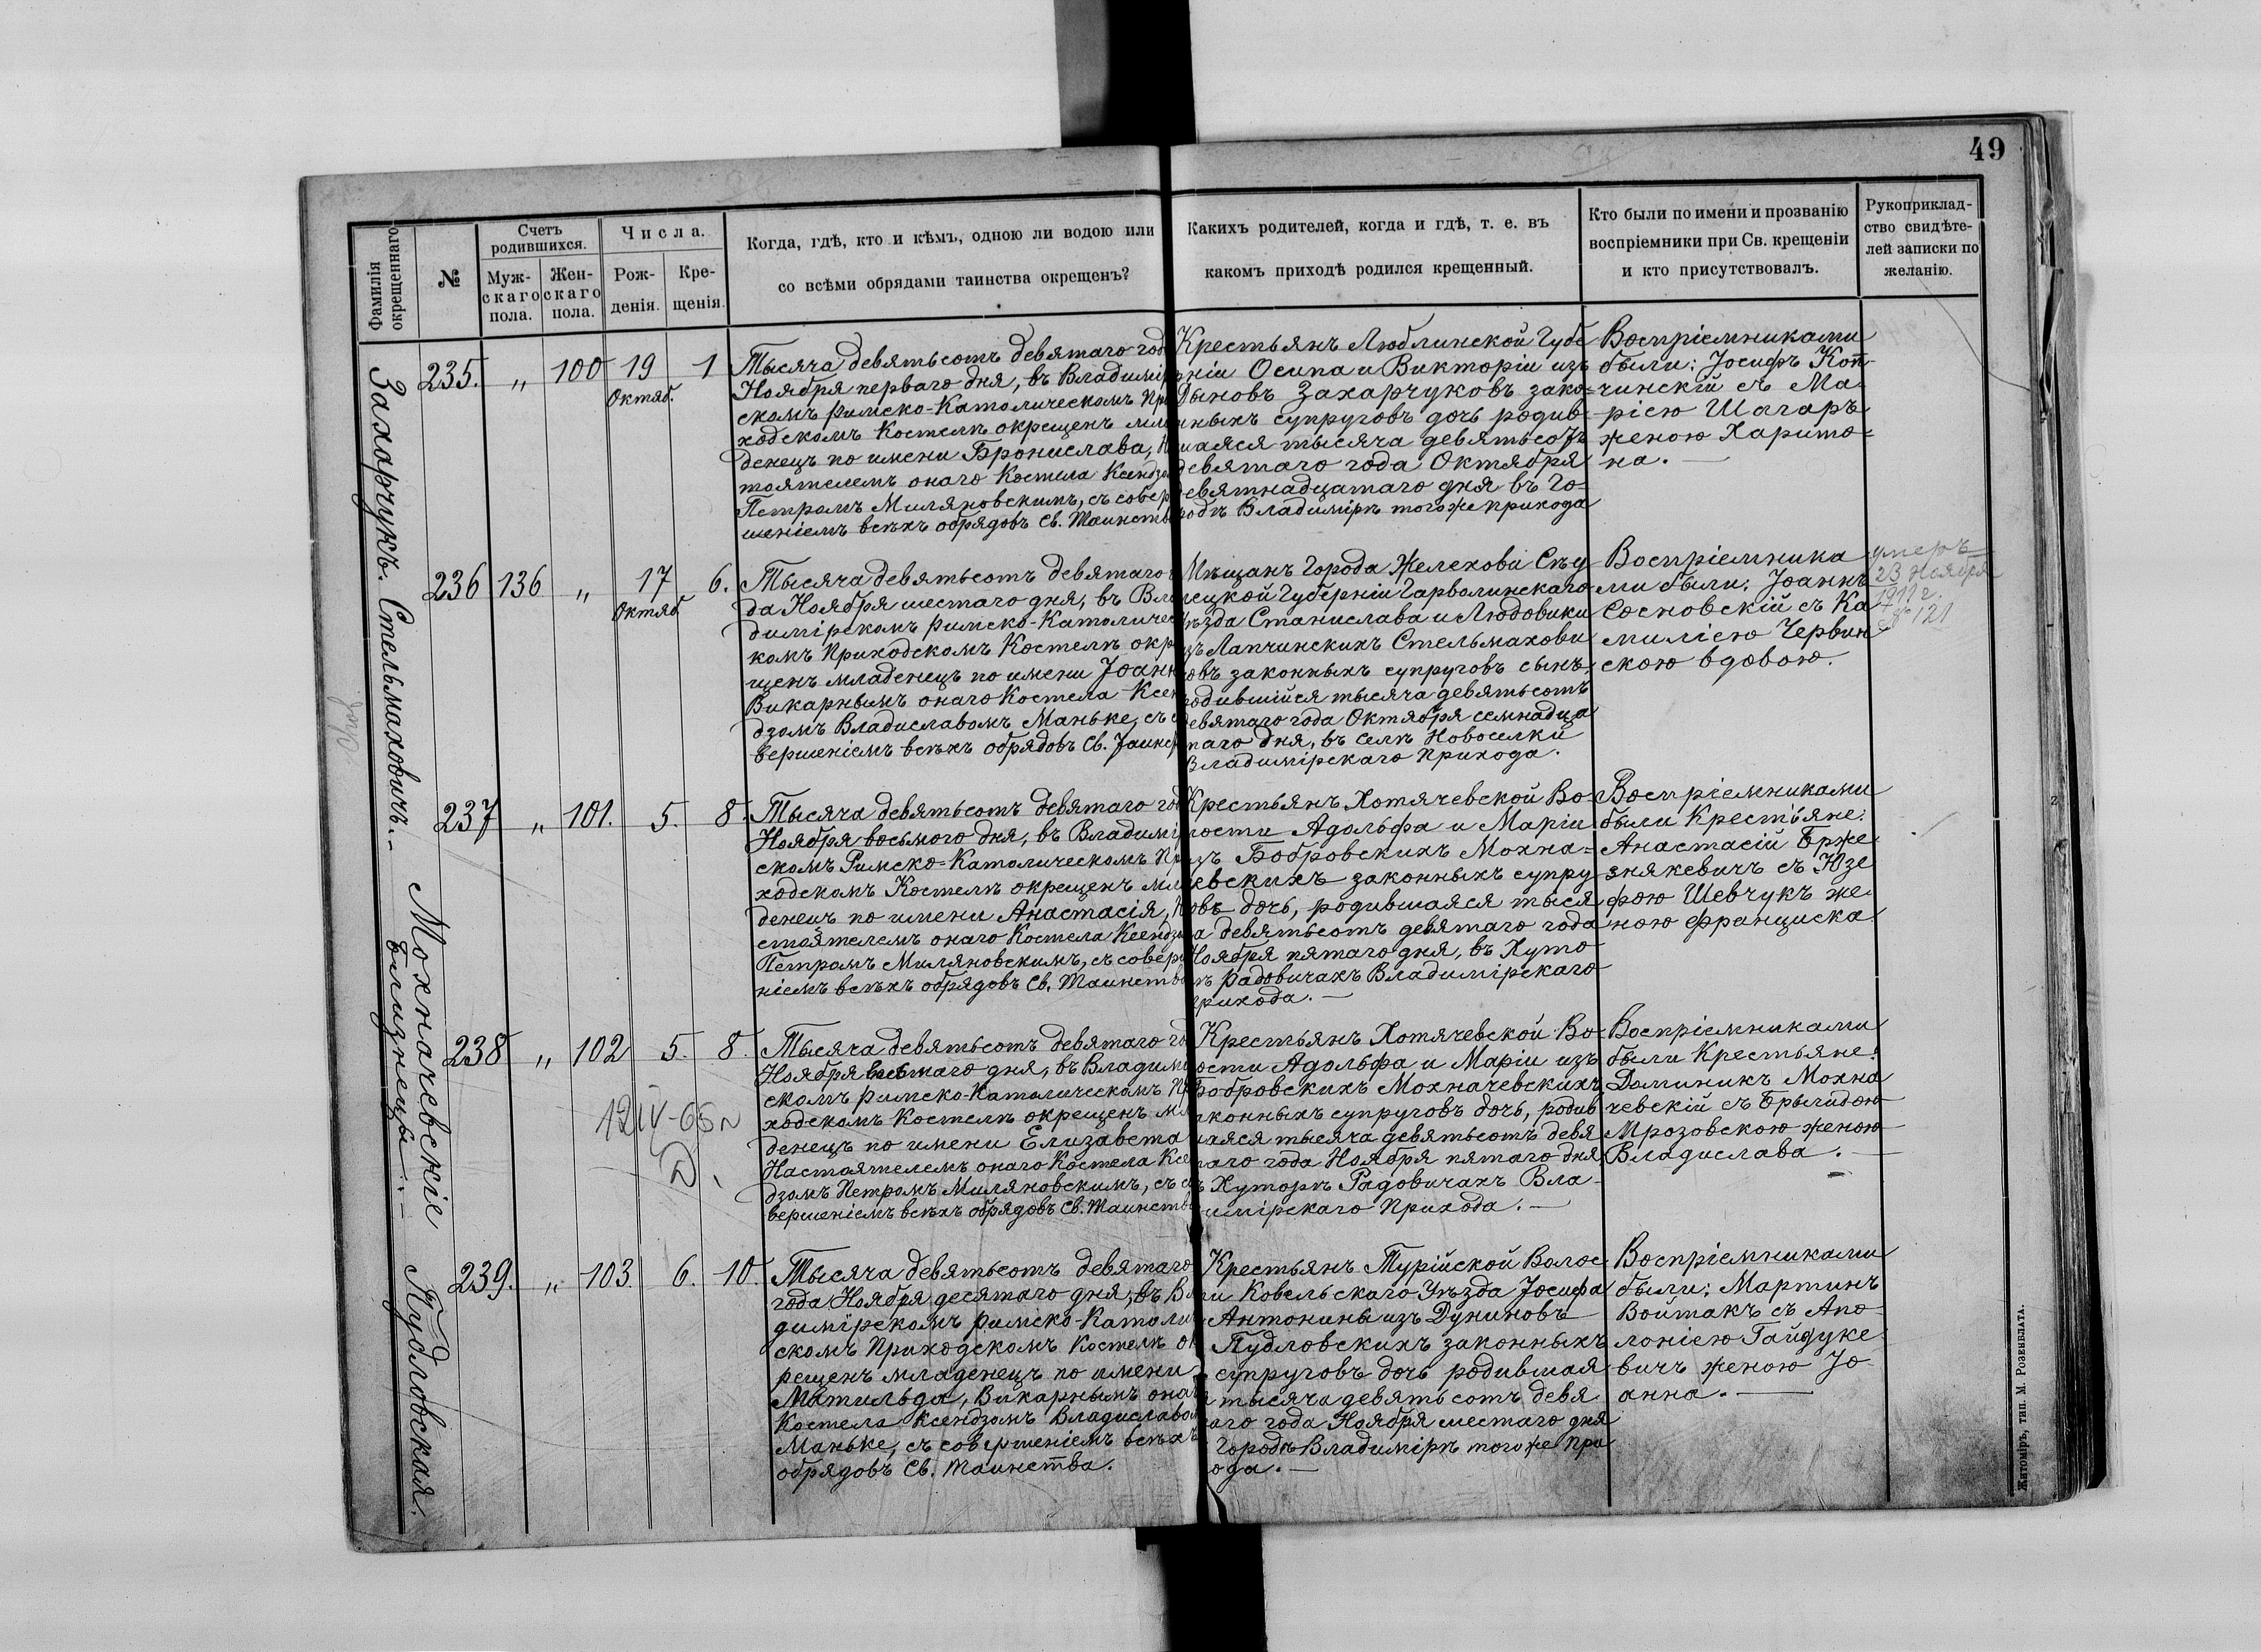 49
Фамилія окрещеннаго
№
Счетъ родившихся.
Муж-скаго пола.
Жен-скаго пола.
Числа.
Рож-денія.
Кре-щенія.
Когда, гдѣ, кто и кѣмъ, одною ли водою или
со всѣми обрядами таинства окрещенъ?
Какихъ родителей, когда и гдѣ, т. е. въ
какомъ приходѣ родился крещенный.
Кто были по имени и прозванію
воспріемники при Св. крещеніи
и кто присутствовалъ.
Рукоприклад-
ство свидѣте-
лей записки по
желанію.
Захарчукъ.
235. „ 100 19 Октяб. 1
Тысяча девятьсотъ девятаго год
Ноября перваго дня, въ Владимір
скомъ Римско-Католическомъ При
ходскомъ Костелѣ окрещенъ мла
денецъ по имени Бронислава, На
тоятелемъ онаго Костела Ксендзо
Петромъ Миляновскимъ, съ совер
шеніемъ всѣхъ обрядовъ Св. Таинств
Крестьянъ Люблинской Губе
рніи Осипа и Викторіи изъ
Дыновъ Захарчуковъ зако-
нныхъ супруговъ дочь родив-
шаяся тысяча девятьсотъ
девятаго года Октября
девятнадцатаго дня въ Го-
родѣ Владимірѣ тогоже прихода
Воспріемниками
были: Іосифъ Коп-
чинскій съ Ма-
ріею Шагаръ
женою Харито-
на. —
Стельмаховичъ.
236 136 „ 17 Октяб 6.
Тысяча девятьсотъ девятаго
да Ноября шестаго дня, въ Вла
димірскомъ Римско-Католичес
комъ Приходскомъ Костелѣ окр
щенъ младенецъ по имени Іоанн
Викарнымъ онаго Костела Ксен
дзомъ Владиславомъ Маньке, съ с
вершеніемъ всѣхъ обрядовъ Св. Таинс
Мѣщанъ Города Желехова Сѣд
лецкой Губерніи Гарволинскаго
ѣзда Станислава и Людовики
зъ Лапчинскихъ Стельмахови
овъ законныхъ супруговъ сынъ,
родившійся тысяча девятьсотъ
девятаго года Октября семнадца
таго дня, въ селѣ Новоселки
Владимірскаго Прихода.
Воспріемника
ми были: Іоаннъ
Сосновскій съ Ка
миліею Червин
скою вдовою.
умеръ
23 Ноября
1911 г.
№ 121
Мохначевскіе
близнецы
237 „ 101. 5. 8.
Тысяча девятьсотъ девятаго год
Ноября восьмого дня, въ Владимі
скомъ Римско-Католическомъ Пр
ходскомъ Костелѣ окрещенъ мла
денецъ по имени Анастасія, На
стоятелемъ онаго Костела Ксендзо
Петромъ Миляновскимъ, съ соверш
ніемъ всѣхъ обрядовъ Св. Таинств
Крестьянъ Хотячевской Во
лости Адольфа и Маріи
зъ Бобровскихъ Мохна-
евскихъ законныхъ супру
овъ дочь, родившаяся тыся
а девятьсотъ девятаго года
Ноября пятаго дня, въ Хуто
ѣ Радовичахъ Владимірскаго
прихода. —
Воспріемниками
были Крестьяне:
Анастасій Брже
знякевичъ съ Юзе
фою Шевчукъ же
ною Франциска
238 „ 102 5. 8.
12 IV-65
Тысяча девятьсотъ девятаго го
Ноября восьмаго дня, въ Владимі
скомъ Римско-Католическомъ Пр
ходскомъ Костелѣ окрещенъ мла
денецъ по имени Елизавета
Настоятелемъ онаго Костела Ксе
дзомъ Петромъ Миляновскимъ, съ с
вершеніемъ всѣхъ обрядовъ Св. Таинств
Крестьянъ Хотячевской Во
лости Адольфа и Маріи изъ
Бобровскихъ Мохначевскихъ
аконныхъ супруговъ дочь, родив
шаяся тысяча девятьсотъ девя
таго года Ноября пятаго дня
ъ Хуторѣ Радовичахъ Вла-
имірскаго Прихода. —
Воспріемниками
были Крестьяне:
Доминикъ Мохна
чевскій съ Брыгидою
Мрозовскою женою
Владислава. —
Пудловская.
239. „ 103. 6. 10.
Тысяча девятьсотъ девятаго
года Ноября десятаго дня, въ Вл
димірскомъ Римско-Католич
скомъ Приходскомъ Костелѣ ок
рещенъ младенецъ по имени
Матильда, Викарнымъ онаг
Костела Ксендзомъ Владиславом
Маньке, съ совершеніемъ всѣхъ
обрядовъ Св. Таинства.
Крестьянъ Турійской Волос
ти Ковельскаго Уѣзда Іосифа
Антонины изъ Дуниновъ
Пудловскихъ законныхъ
супруговъ дочь родившая
я тысяча девятьсотъ девя
таго года Ноября шестаго дня
Городѣ Владимірѣ тогоже При
ода. —
Воспріемниками
были: Мартинъ
Войтакъ съ Апо-
лоніею Гайдуке
вичъ женою Іо
анна. —
Житоміръ, тип. М. Розенблата.